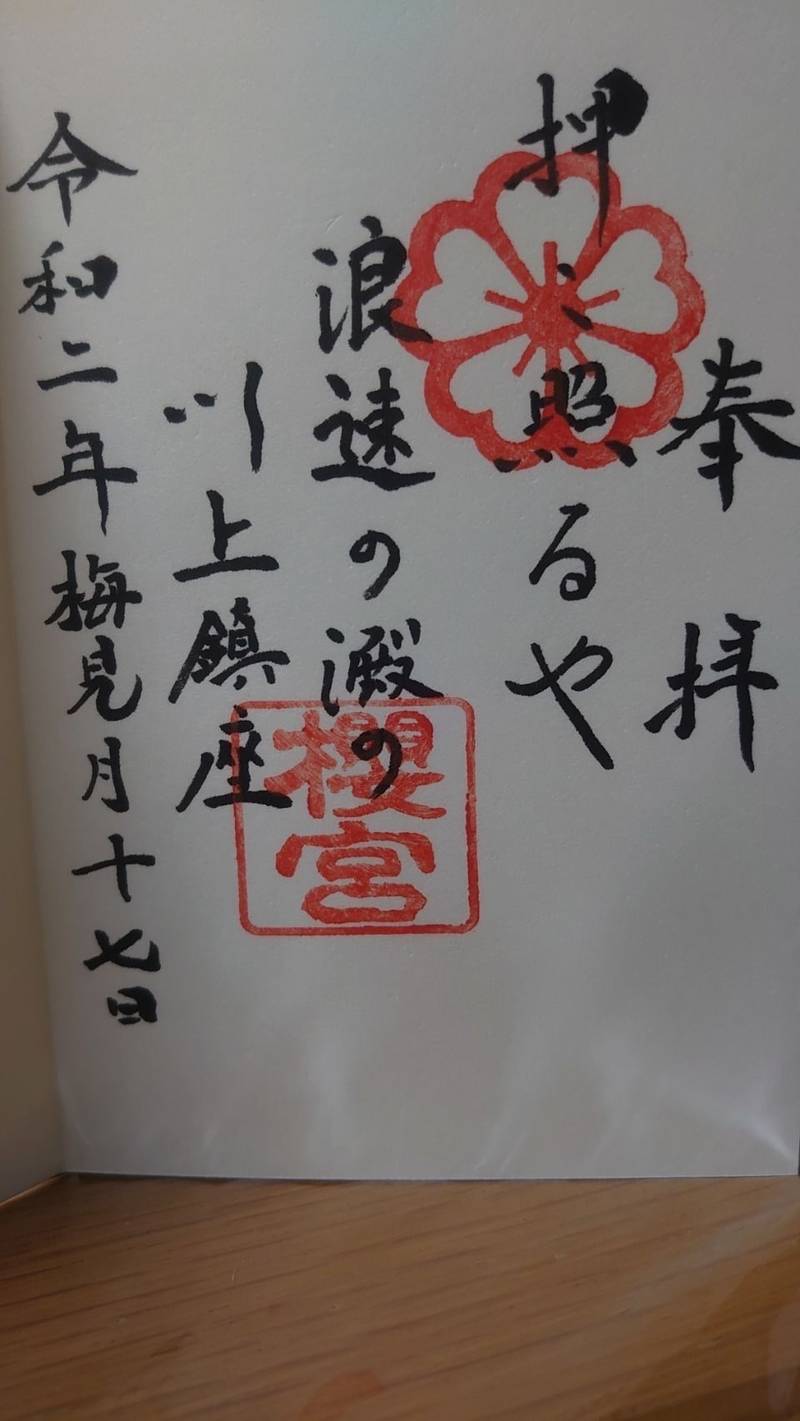 奉拝
押ミ照るや
浪速の澱の
川上鎮座
櫻宮
令和二年梅見月十七日